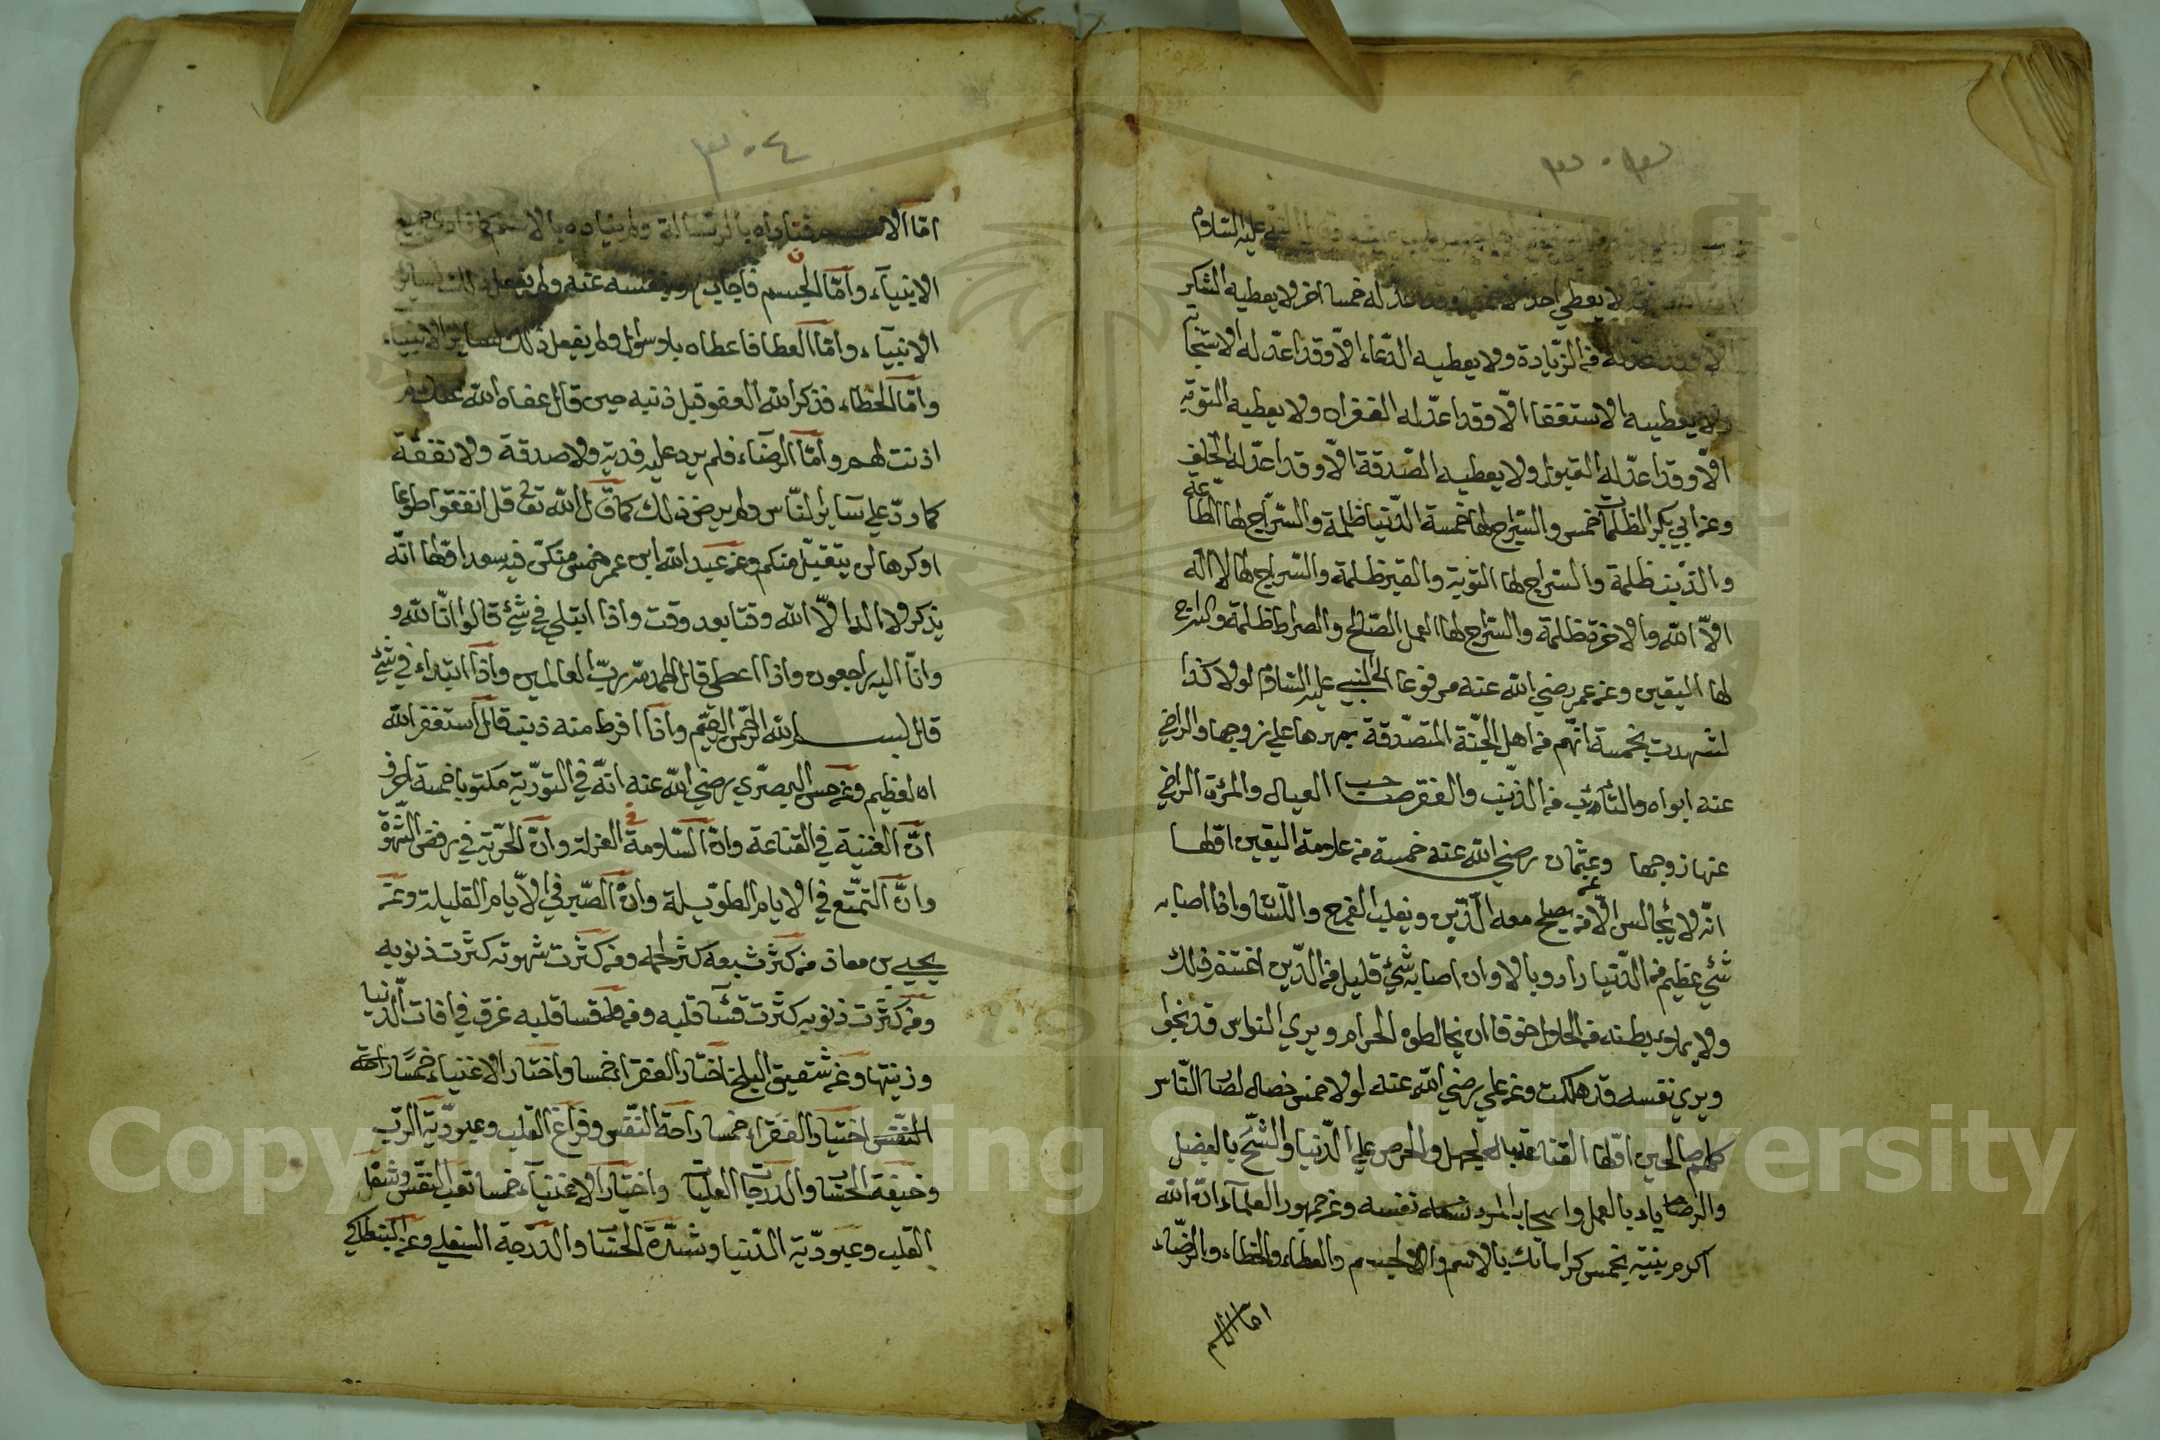 ٣٠٣
عليه السلام
لا يعطي احد له خمسا اخر ولا يعطيه الشكر
الّا وقد اعدّ له في الزّيادة ولا يعطيه الدّعاء الّا وقد اعدّ له الاستجابة
ولا يعطيه الاستغفا الّا وقد اعدّ له الغفران ولا يعطيه التوبة
الّا وقد اعدّ له القبول ولا يعطيه الصّدقة الّا وقد اعدّ له الخلف
وعن ابي بكر الظلمات خمس والسّراج لها خمسة الدّنيا ظلمة والسّراج لها الطاعة
والذّنب ظلمة والسّراج لها التوبة والقبر ظلمة والسّراج لها لا اله
الّا الله والاخرة ظلمة والسّراج لها العمل الصّالح والصراط ظلمة والسّراج
لها اليقين وعن عمر رضي الله عنه مرفوعا الى النبي عليه السّلام لولا كذا
لشهدت بخمسة انّهم من اهل الجنّة المتصدّقة بمهرها علي زوجها والراضي
عنه ابواه والتائب من الذّنب والفقر صاحب العيال والمرئة الراضي
عنها زوجها وعثمان رضي الله عنه خمسة من علامة اليقين اوّلها
انّه لا يجالس الّا من يصلح معه الدّين ويغلب الفرج واللّسان واذا اصابه
شئ عظيم من الدّنيا راه وبالا وان اصابه شئ قليل من الدّين اغتنم ذلك
ولا يملاء بطنه من الحلال خوفا ان يخالطه الحرام ويري النّاس قد نجوا
ويري نفسه قد هلكت وعن علي رضي الله عنه لولا خمس خصال لصار النّاس
كلهم صالحين اوّلها القناعة بالجهل والحرص علي الدّنيا والشّح بالفضل
والرياء بالعمل واعجاب المرء نفسه وعن جمهور العلماء انّ الله
اكرم نبيّه بخمس كرامات بالاسم والجسم والعطاء والخطاء والرضّاء
امّا الاسم
٣٠٤
امّا الاسم فناداه بالرّسالة ولم يناده بالاسم كما نادى جميع
الانبياء وامّا الجسم فاجاب من نفسه عنه ولم يفعل ذلك لساير
الانبياء وامّا العطا فاعطاه بلا سؤال ولم يفعل ذلك لساير الانبياء
وامّا الخطاء فذكر الله العفو قبل ذنبه حين قال عفاه الله عنك لم
اذنت لهم وامّا الرضاء فلم يرد عليه فدية ولا صدقة ولا نفقة
كما ردّ علي ساير النّاس ولم يرض ذلك كما قال الله تعالى قل انفقوا طوعا
او كرها لن يتقبّل منكم وعن عبد الله ابن عمر خمس من كنّ فيه سعد اوّلها انّه
يذكر لا اله الّا الله وقتا بعد وقت واذا ابتلي في شئ قالوا انّا لله و
وانّا اليه راجعون واذا اعطي قال الحمد لله ربّ العالمين واذا ابتداء في شئ
قال بسم الله الرّحمن الرّحيم واذا افرط منه ذنب قال استغفر الله
العظيم وعن حسن البصّري رضي الله عنه انّه في التورّية مكتوبا خمسة احرف
انّ الغنية في القناعة وانّ السّلامة في العزلة وانّ الحرّية في رفض الشّهوة
وانّ التمتّع في الايام الطوّيلة وانّ الصّبر في الايّام القليلة وعن
يحيي بن معاذ من كثر شبعه كثر لحمه ومن كثرت شهوته كثرت ذنوبه
ومن كثرت ذنوبه كثرت قسا قلبه ومن قسا قلبه غرق في افات الدّنيا
وزينتها وعن شقيق البلخ اختار الفقراء خمسا واختار الاغنياء خمسا راحة
النّفس اختيار الفقراء خمسا راحة النّفس وفراغ القلب وعبودّية الرّب
وخيفة الحساب والدّرجات العليات واختيار الاغنياء خمسا تعب النّفس وشغل
القلب وعبودّية الدّنيا وشدّة الحساب والدّرجة السفلي وعن